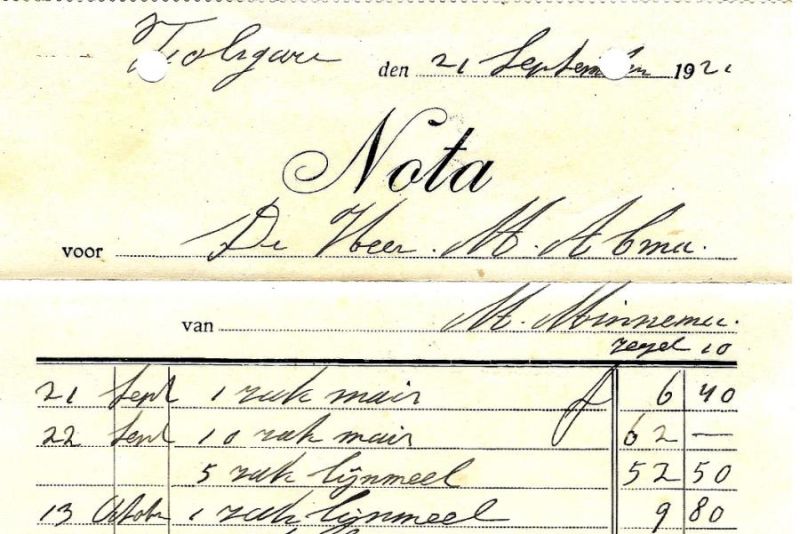 Tolsgare den 21 September 1921
Nota
voor De Heer. M. Abma.
van M. Minnema.
zegel 10
21 Sept 1 zak mais f 6 40
22 Sept 10 zak mais 62 —
5 zak lijnmeel 52 50
13 Octobr 1 zak lijnmeel 9 80